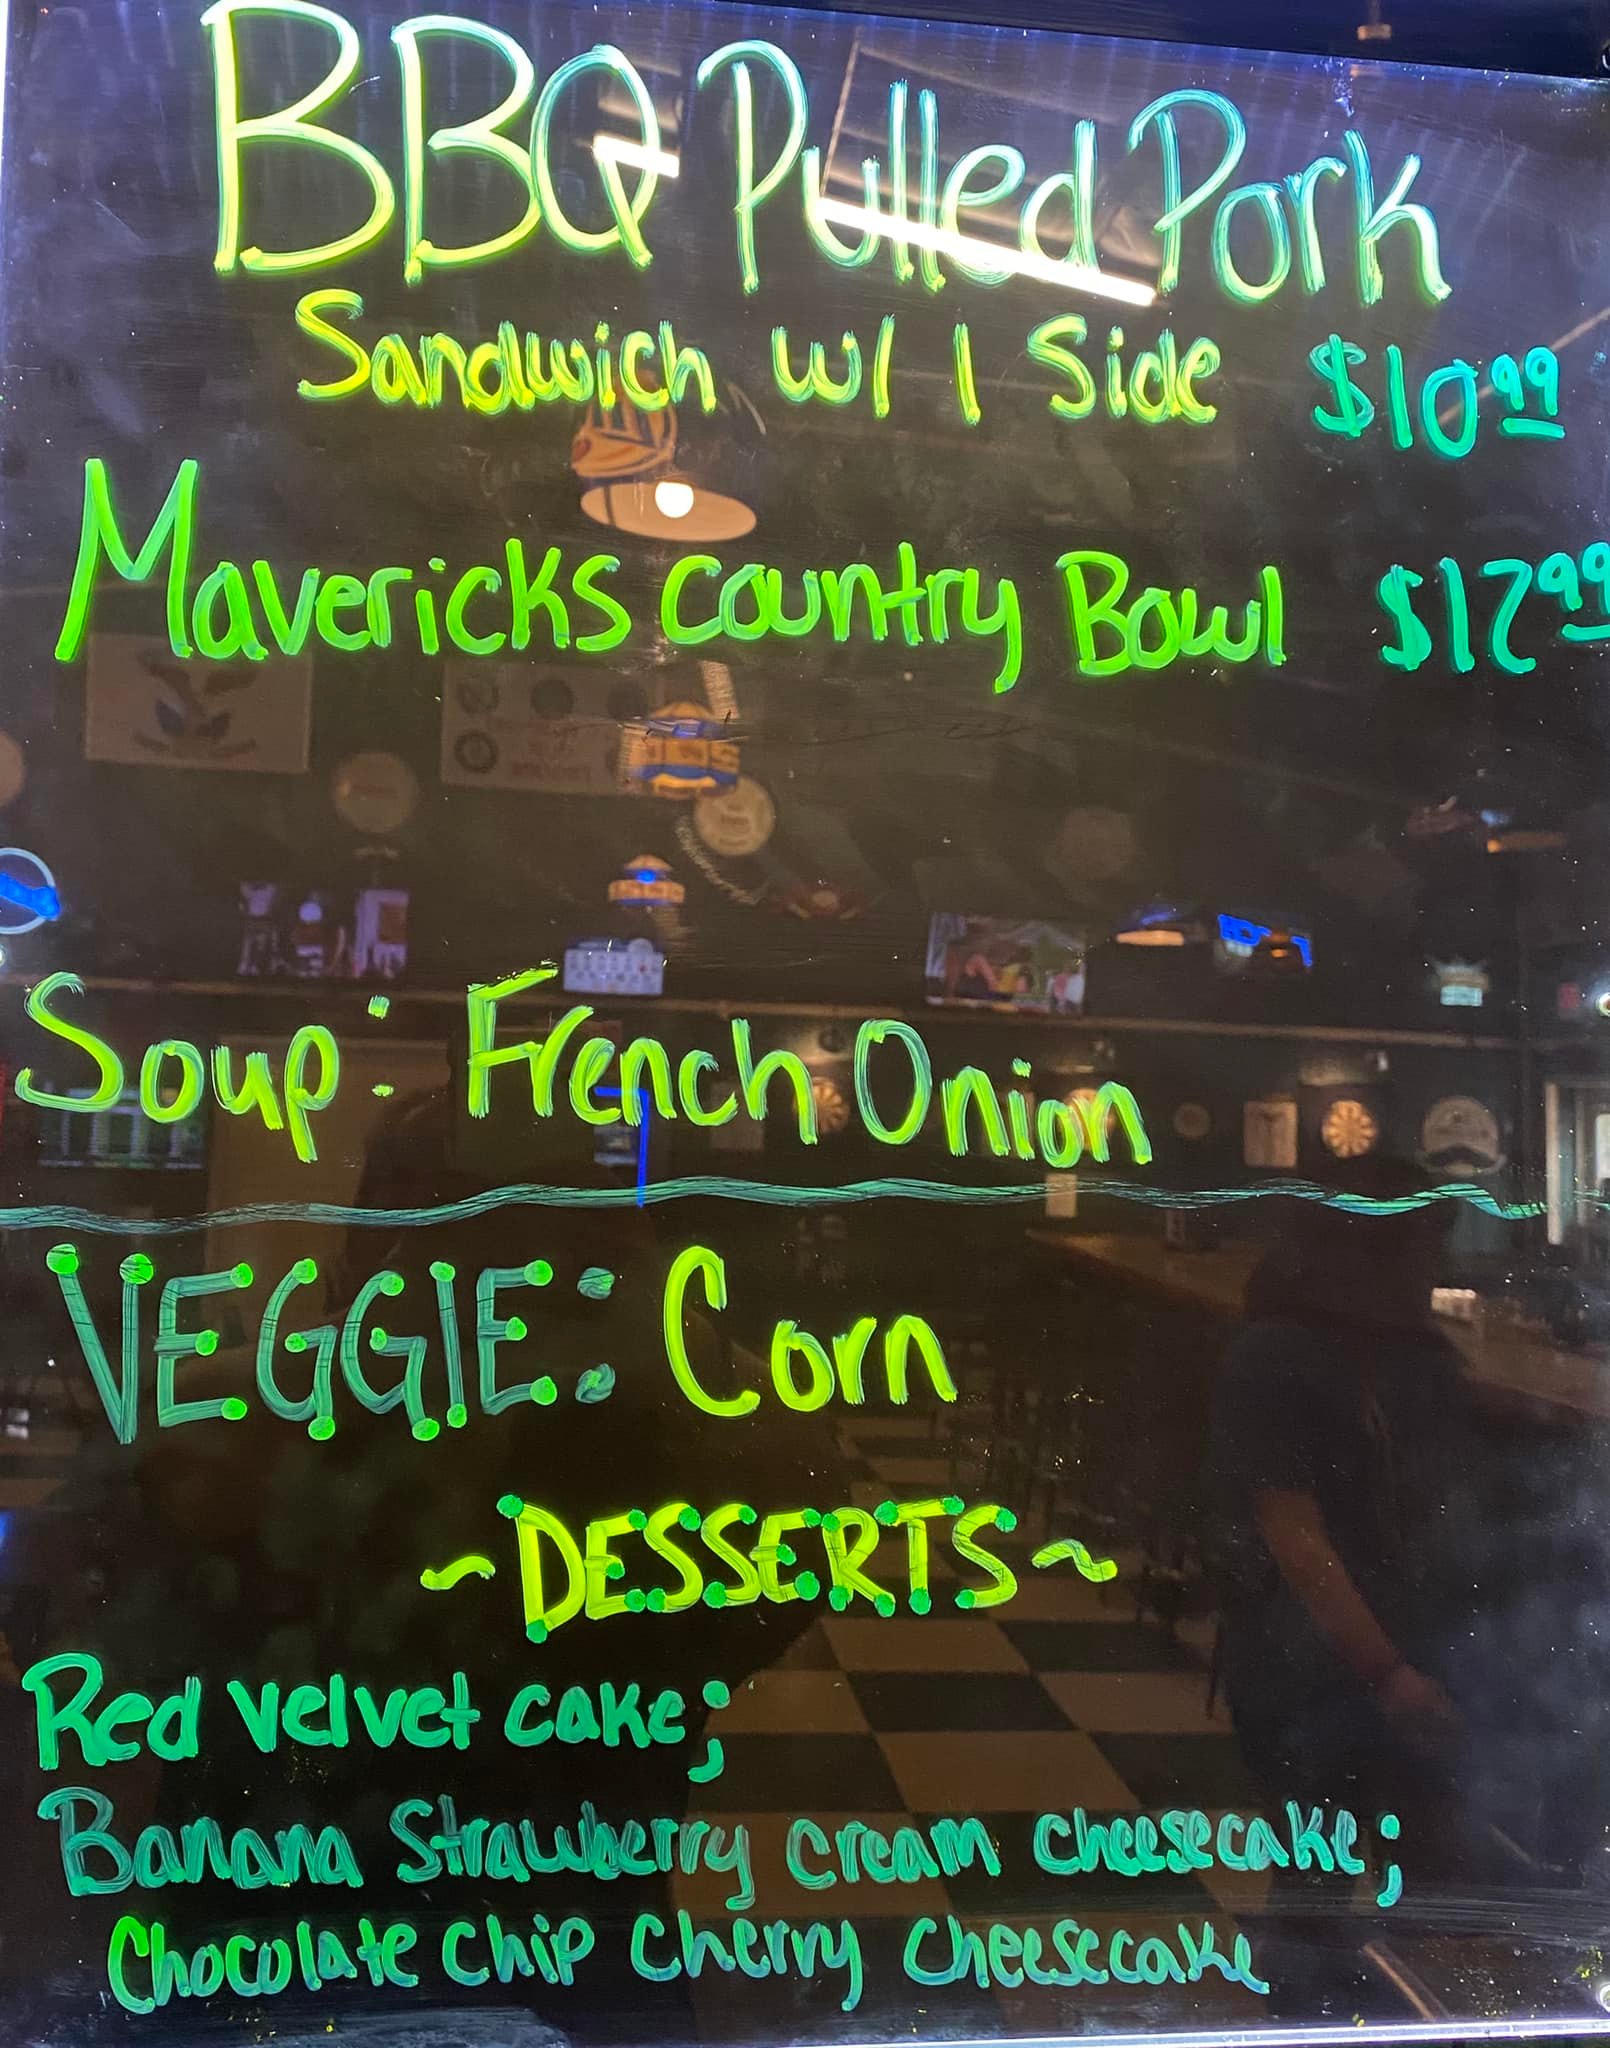 BBQ Pulled Pork
Sandwich w/ 1 Side $10.99
Mavericks Country Bowl $12.99
Soup: French Onion
VEGGIE: Corn
~DESSERTS~
Red velvet cake;
Banana Strawberry cream cheesecake;
Chocolate chip cherry cheesecake